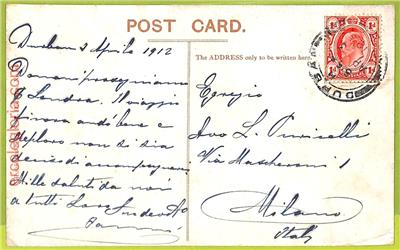 POST CARD.
The ADDRESS only to be written here
Durban 3 Aprile 1912
Domani proseguiamo
p Londra. Il viaggio
finora andò bene e
deploro non si sia
deciso di accompagnarci
Mille saluti da noi
a tutti Loro
Egregio
Avv. L. Pirricelli
Via Mascheroni 1
Milano
Italy
DURBAN